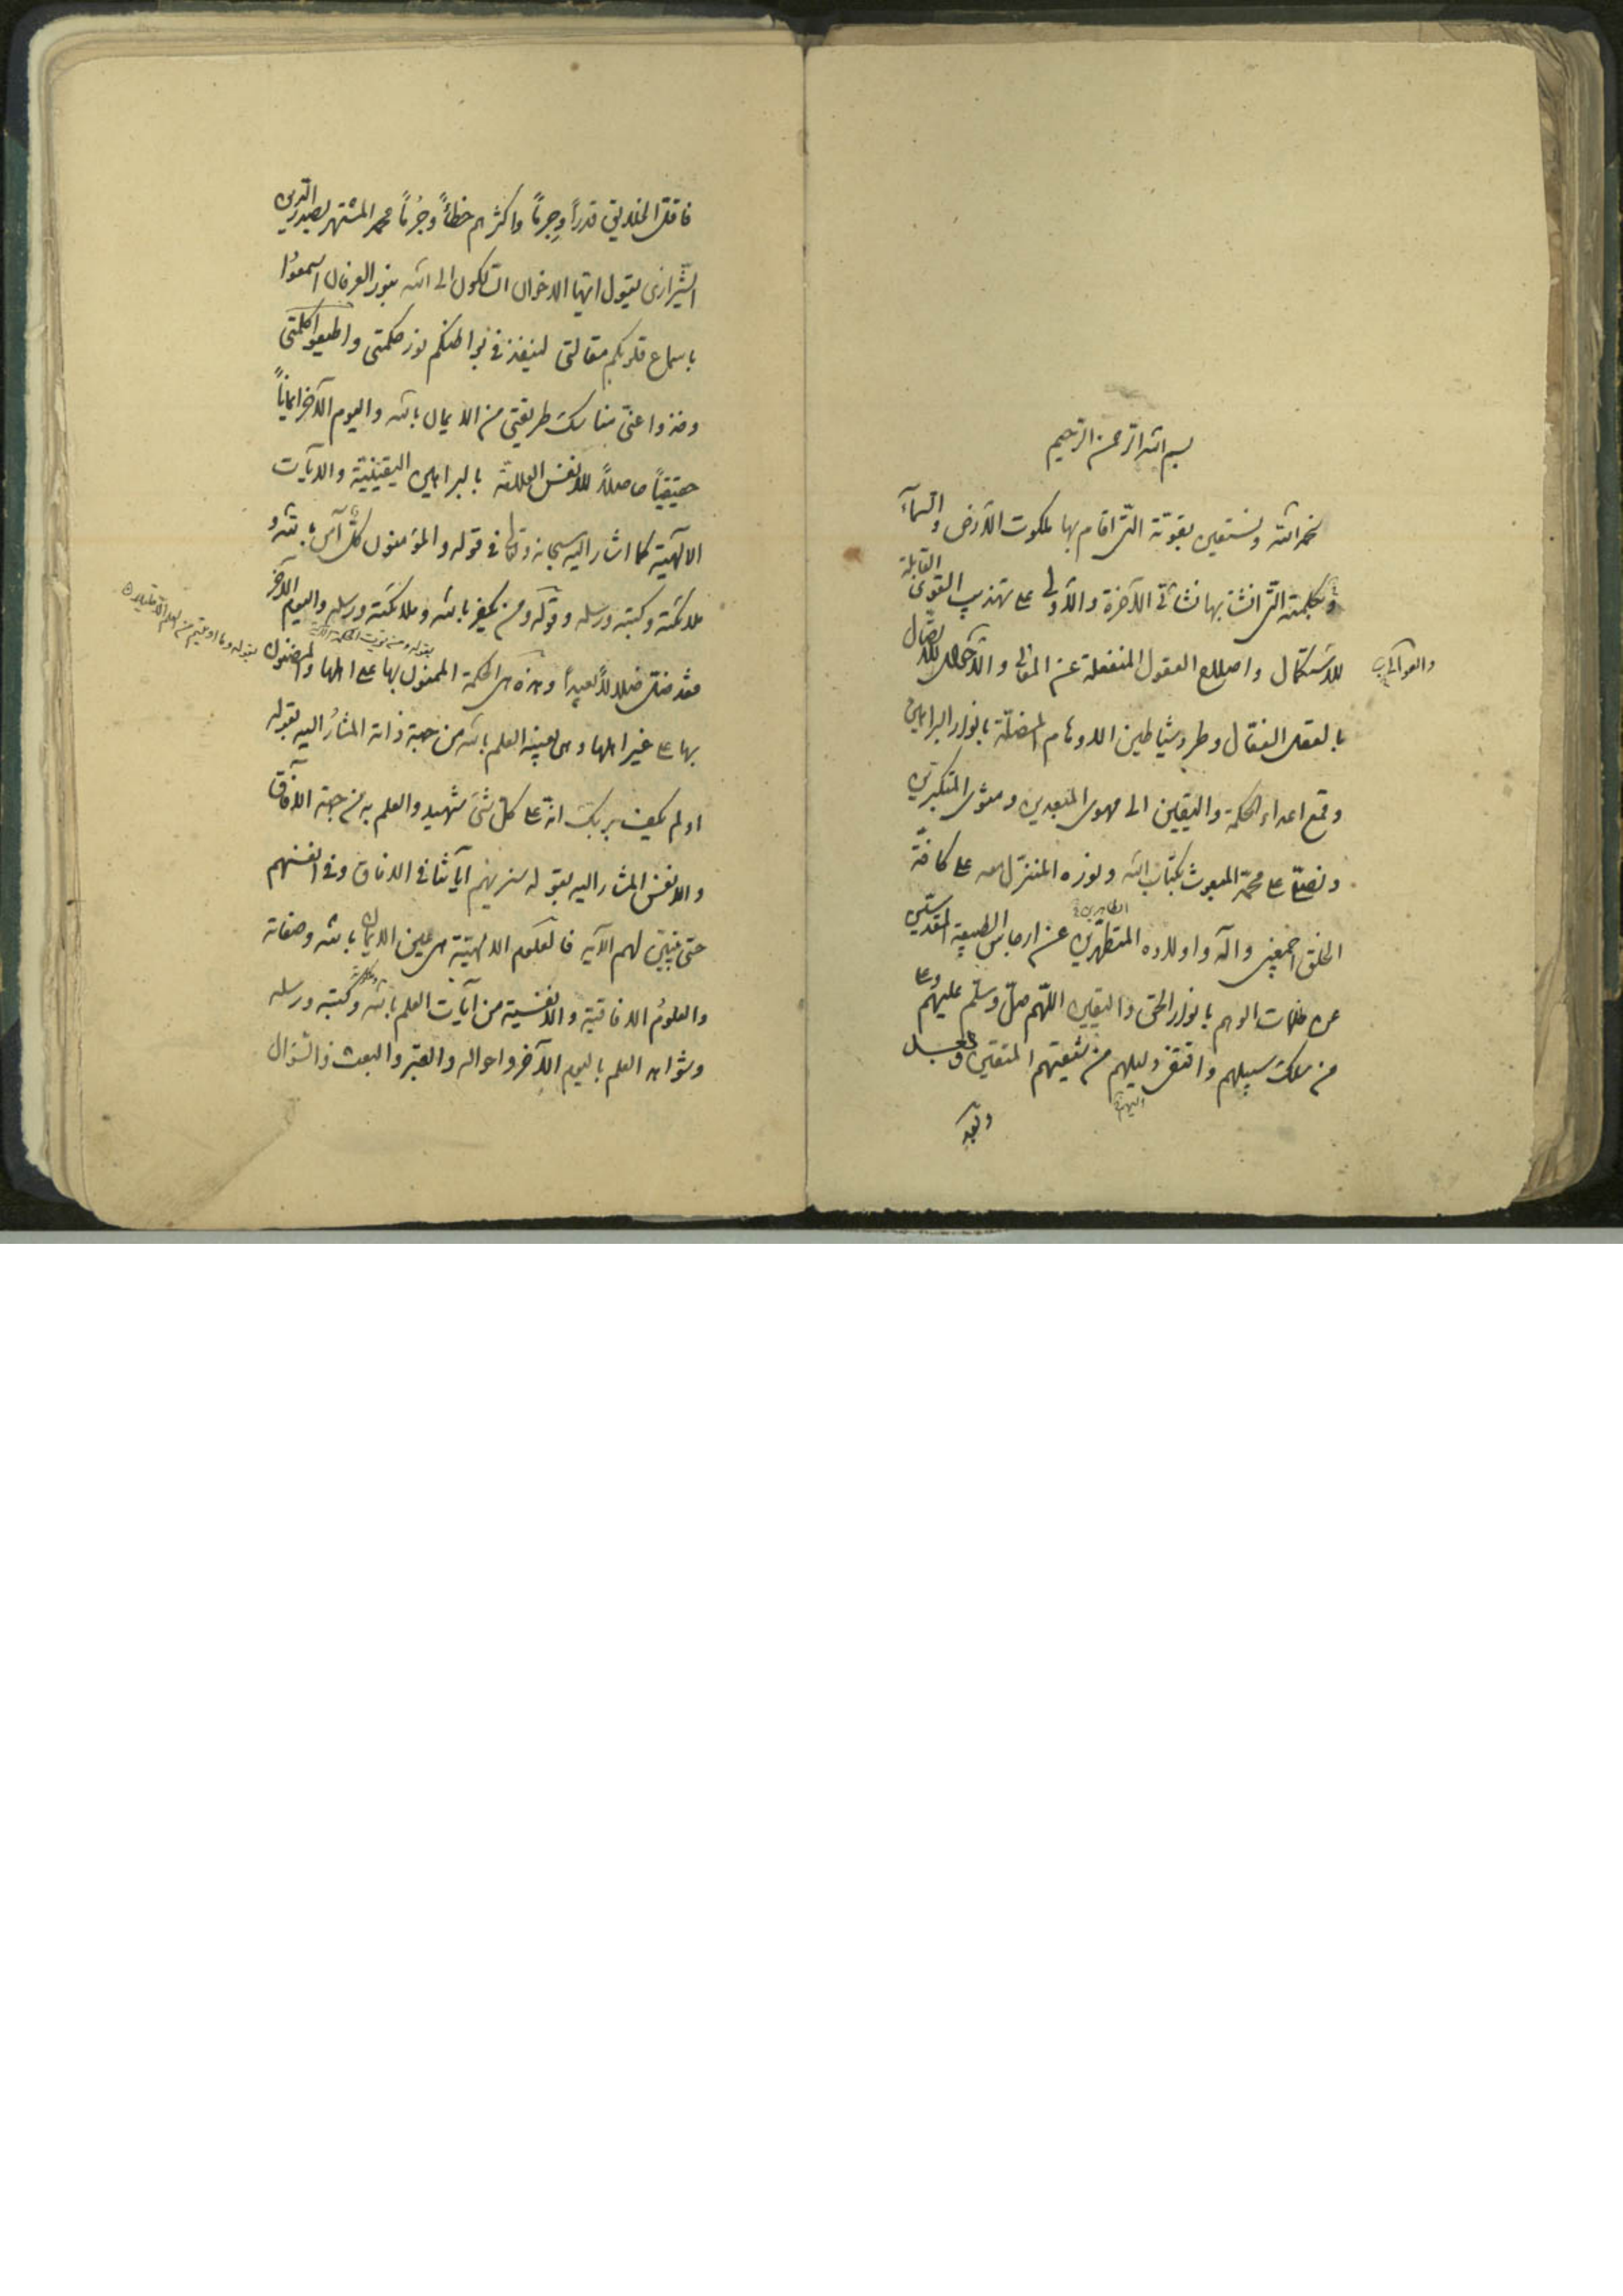 بسم الله الرحمن الرحيم
نحمد الله ونستعين بقوته التى اقام بها ملكوت الأرض والسمآء
وبكلمته التى انشأ بها نشأتى الآخرة والأولى على تهذيب القوى القابلة
للاستكمال واصلاح العقول المنفعلة عن المعانى والأحوال للاتصال
بالعقل الفعّال وطرد شياطين الاوهام المضلّة بانوار البراهين
وقمع اعداء الحكمة واليقين الى مهوى المبعدين ومثوى المتكبرين
ونصلّى على محمّد المبعوث بكتاب الله ونوره المنزل معه على كافّة
الخلق اجمعين وآله واولاده المتطهّرين عن ارجاس الطبيعة المقدسين
الطاهرين
عن ظلمات الوهم بانوار الحق واليقين اللهم صلّ وسلّم عليهم وعلى
من سلك سبيلهم واقتفى دليلهم من شيعتهم المتقين
وبعد
فاقلّ الخلايق قدراً وجِرماً واكثرهم خطأً وجُرماً محمد المشتهر بصدر الدّين
الشّيرازى يقول ايّها الاخوان السّالكون الى الله بنور العرفان اسمعوا
باسماع قلوبكم مقالتى لينفذ فى بواطنكم نور حكمتى واطيعوا كلمتى
وخذوا عنّى مناسك طريقتى من الايمان بالله واليوم الآخر ايماناً
حقيقياً حاصلاً للانفس العلامة بالبراهين اليقينيّة والآيات
الآلهية كما اشار اليه سبحانه وتعالى فى قوله والمؤمنون كلّ آمن بالله و
ملائكته وكتبه ورسله وقوله ومن يكفر بالله وملائكته ورسله واليوم الآخر
فقد ضلّ ضلالاً بعيداً وهذه هى الحكمة الممنون بها على اهلها والمضنون
بقوله ومن يؤت الحكمة
بقوله وما اوتيتم من العلم الا قليلا
بها على غير اهلها وهى بعينها العلم بالله من جهة ذاته المشارُ اليه بقوله
اولم يكف بربك انّه على كل شىء شهيد والعلم به من جهة الآفاق
والانفس المشار اليه بقوله سنريهم آياتنا فى الافاق وفى انفسهم
حتى يتبيّن لهم الآية فالعلوم الالهيّة هى عين الايمان بالله وصفاته
والعلوم الافاقية والانفسية من آيات العلم بالله وكتبه ورسله
وشواهد العلم باليوم الآخر واحواله والقبر والبعث والسّؤال